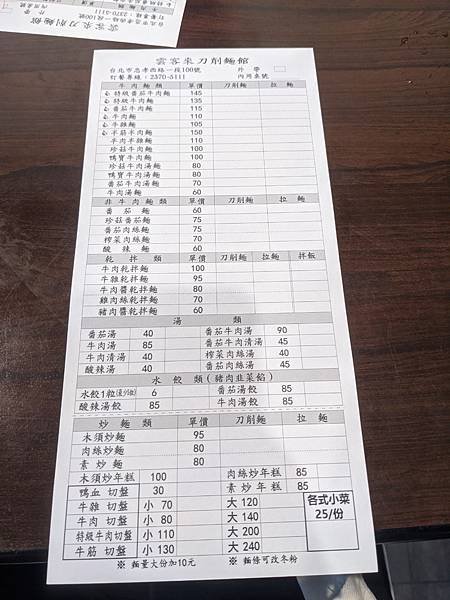 雲客來刀削麵館
台北市忠孝西路一段100號 外帶
訂餐專線：2370-5111 內用桌號
牛肉麵類 單價 刀削麵 拉麵
特級番茄牛肉麵 145
特級牛肉麵 135
番茄牛肉麵 115
牛肉麵 110
牛雜麵 105
半筋半肉麵 150
半肉半雜麵 110
珍菇牛肉麵 100
鴨寶牛肉麵 100
珍菇牛肉湯麵 80
鴨寶牛肉湯麵 80
番茄牛肉湯麵 70
牛肉湯麵 60
非牛肉麵類 單價 刀削麵 拉麵
番茄麵 60
珍菇番茄麵 75
番茄肉絲麵 75
榨菜肉絲麵 70
酸辣麵 60
乾拌類 單價 刀削麵 拉麵 拌飯
牛肉乾拌麵 100
牛雜乾拌麵 95
牛肉醬乾拌麵 80
雞肉絲乾拌麵 70
豬肉醬乾拌麵 60
湯類
番茄湯 40 番茄牛肉湯 90
牛肉湯 85 番茄牛肉清湯 45
牛肉清湯 40 榨菜肉絲湯 40
酸辣湯 40 番茄肉絲湯 45
水餃類(豬肉韭菜餡)
水餃1粒 6 番茄湯餃 85
酸辣湯餃 85 牛肉湯餃 85
炒麵類 單價 刀削麵 拉麵
木須炒麵 95
肉絲炒麵 80
素炒麵 80
木須炒年糕 100 肉絲炒年糕 85
鴨血切盤 30 素炒年糕 85
牛雜切盤 小 70 大 120
牛肉切盤 小 80 大 140
特級牛肉切盤 小 110 大 200
牛筋切盤 小 130 大 240
各式小菜
25/份
※ 麵量大份加10元 ※ 麵條可改冬粉